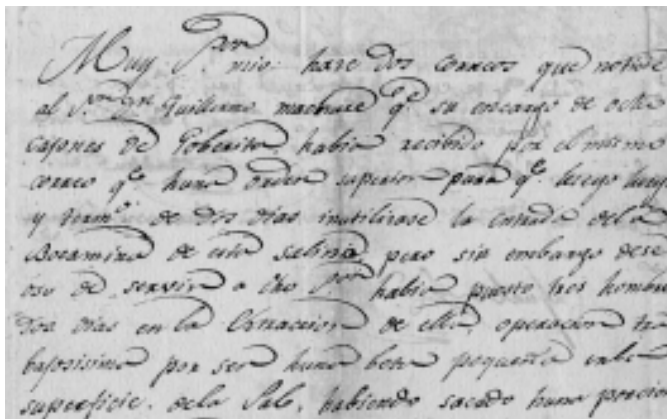 Muy Sor mio hace dos correos que noticie
al Sor Dn Guillermo maclure qe su encargo de ocho
cajones de Goberita, habia recibido por el mismo
correo qe huna orden superior para qe luego luego
y termo de dos dias inutilisase la entrada de la
Bocamina de esta salina, pero sin embargo dese
oso de servir a dho Sor habia puesto tres hombres
dos dias en la de ella, operacion tra
bajosisima por ser huna beta pequeña en la
superficie de la Sal, habiendo sacado huna porcion